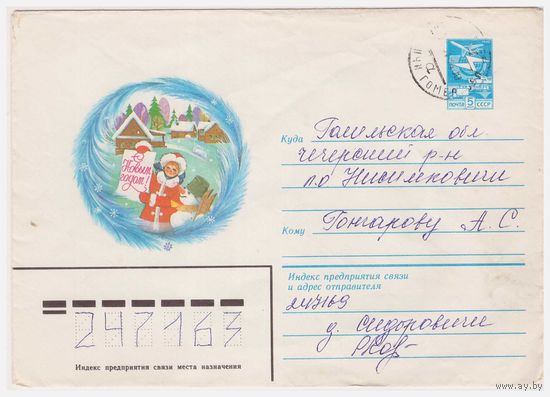 ПОЧТА 5 СССР
ГОМЕЛ
С Новым годом!
Куда Гомельская обл.
Чечерский р-н
п.о Нисимковичи
Кому Гончарову А. С.
Индекс предприятия связи
и адрес отправителя
247169
д. Сидоровичи
247163
Индекс предприятия связи места назначения
ay.by